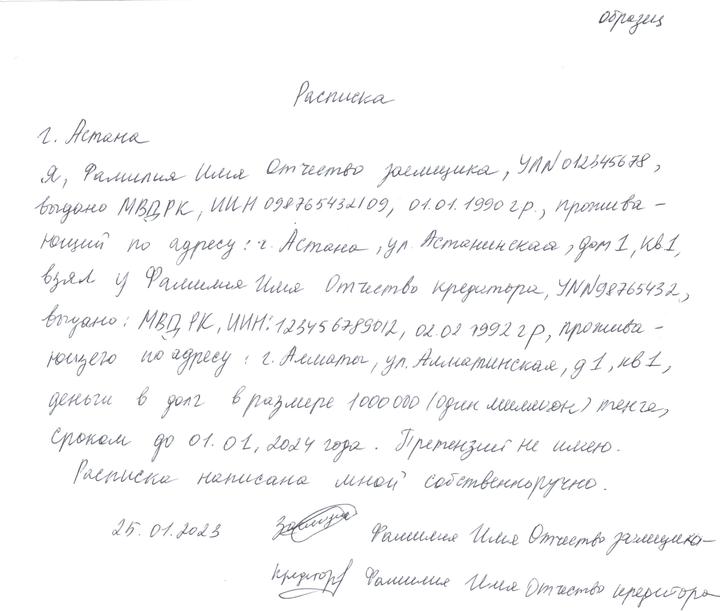 Образец
Расписка
г. Астана
Я, Фамилия Имя Отчество заемщика, УЛN012345678,
выдано МВД РК, ИИН 098765432109, 01.01.1990 гр., прожива-
ющий по адресу: г. Астана, ул. Астанинская, дом 1, кв1,
взял у Фамилия Имя Отчество кредитора, УЛN98765432,
выдано: МВД РК, ИИН: 123456789012, 02.02 1992 гр, прожива-
ющего по адресу: г. Алматы, ул. Алматинская, д1, кв1,
деньги в долг в размере 1000000 (один миллион) тенге,
сроком до 01.01.2024 года. Претензий не имею.
Расписка написана мной собственноручно.
25.01.2023 Заемщик Фамилия Имя Отчество заемщика
кредитор Фамилия Имя Отчество кредитора